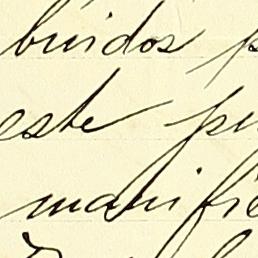 buidos p
este pu
manifie